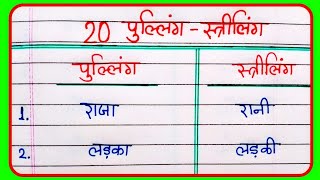 20 पुल्लिंग - स्त्रीलिंग
पुल्लिंग स्त्रीलिंग
1. राजा रानी
2. लड़का लड़की